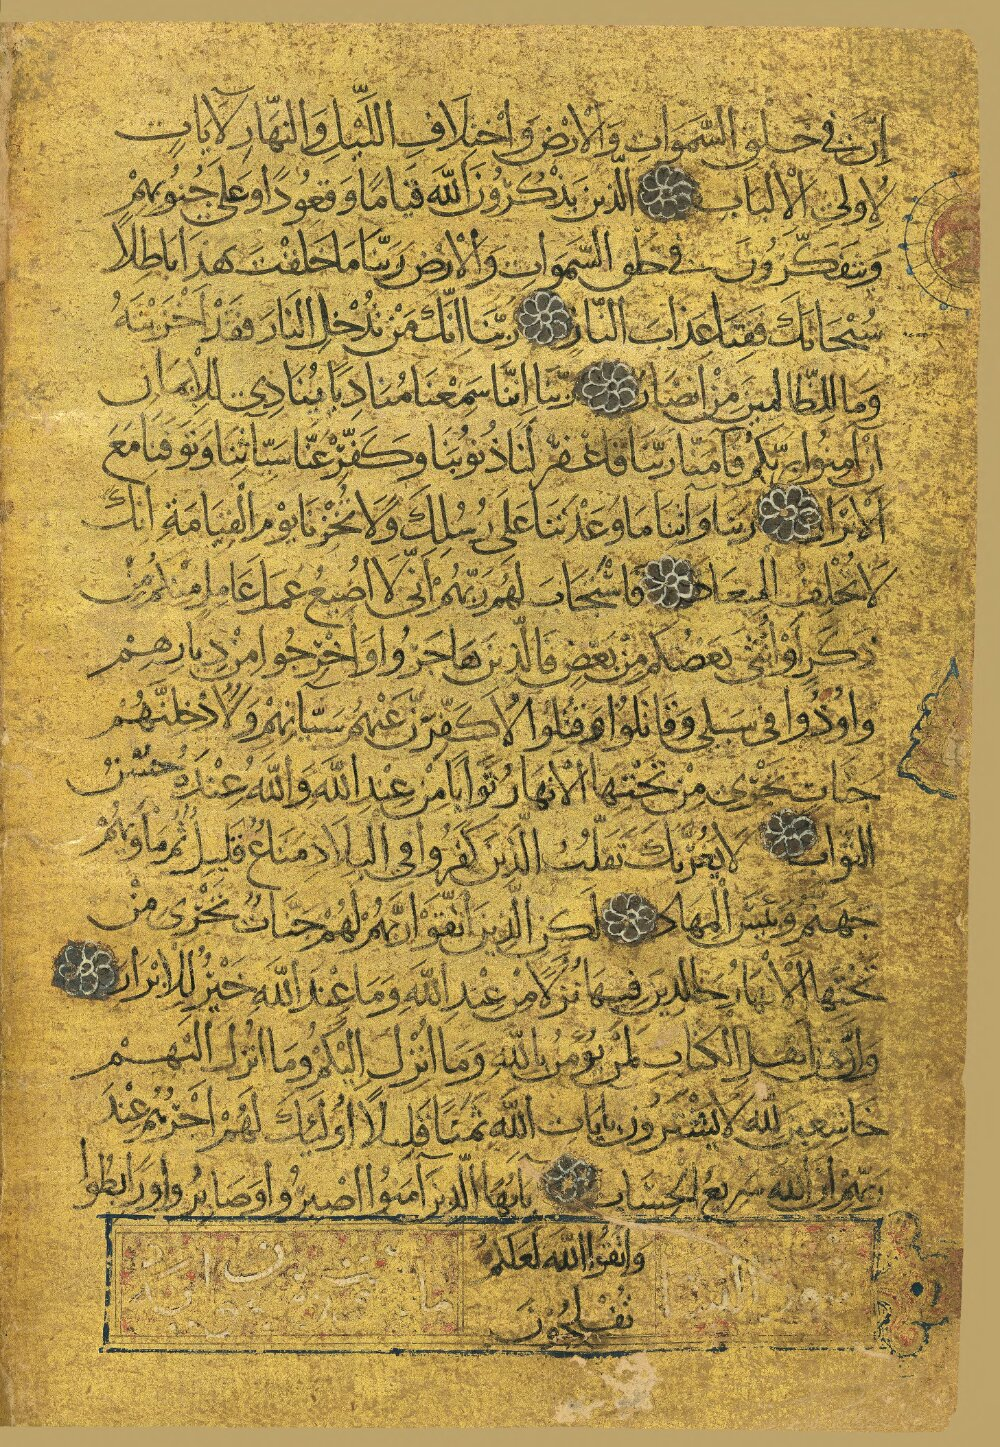 إِنَّ فِي خَلْقِ السَّمَوَاتِ وَالْأَرْضِ وَاخْتِلَافِ اللَّيْلِ وَالنَّهَارِ لَآيَاتٍ
لِأُولِي الْأَلْبَابِ الَّذِينَ يَذْكُرُونَ اللَّهَ قِيَامًا وَقُعُودًا وَعَلَى جُنُوبِهِمْ
وَيَتَفَكَّرُونَ فِي خَلْقِ السَّمَوَاتِ وَالْأَرْضِ رَبَّنَا مَا خَلَقْتَ هَذَا بَاطِلًا
سُبْحَانَكَ فَقِنَا عَذَابَ النَّارِ رَبَّنَا إِنَّكَ مَنْ تُدْخِلِ النَّارَ فَقَدْ أَخْزَيْتَهُ
وَمَا لِلظَّالِمِينَ مِنْ أَنْصَارٍ رَبَّنَا إِنَّنَا سَمِعْنَا مُنَادِيًا يُنَادِي لِلْإِيمَانِ
أَنْ آمِنُوا بِرَبِّكُمْ فَآمَنَّا رَبَّنَا فَاغْفِرْ لَنَا ذُنُوبَنَا وَكَفِّرْ عَنَّا سَيِّئَاتِنَا وَتَوَفَّنَا مَعَ
الْأَبْرَارِ رَبَّنَا وَآتِنَا مَا وَعَدْتَنَا عَلَى رُسُلِكَ وَلَا تُخْزِنَا يَوْمَ الْقِيَامَةِ إِنَّكَ
لَا تُخْلِفُ الْمِيعَادَ فَاسْتَجَابَ لَهُمْ رَبُّهُمْ أَنِّي لَا أُضِيعُ عَمَلَ عَامِلٍ مِنْكُمْ مِنْ
ذَكَرٍ أَوْ أُنْثَى بَعْضُكُمْ مِنْ بَعْضٍ فَالَّذِينَ هَاجَرُوا وَأُخْرِجُوا مِنْ دِيَارِهِمْ
وَأُوذُوا فِي سَبِيلِي وَقَاتَلُوا وَقُتِلُوا لَأُكَفِّرَنَّ عَنْهُمْ سَيِّئَاتِهِمْ وَلَأُدْخِلَنَّهُمْ
جَنَّاتٍ تَجْرِي مِنْ تَحْتِهَا الْأَنْهَارُ ثَوَابًا مِنْ عِنْدِ اللَّهِ وَاللَّهُ عِنْدَهُ حُسْنُ
الثَّوَابِ لَا يَغُرَّنَّكَ تَقَلُّبُ الَّذِينَ كَفَرُوا فِي الْبِلَادِ مَتَاعٌ قَلِيلٌ ثُمَّ مَأْوَيهُمْ
جَهَنَّمُ وَبِئْسَ الْمِهَادُ لَكِنِ الَّذِينَ اتَّقَوْا رَبَّهُمْ لَهُمْ جَنَّاتٌ تَجْرِي مِنْ
تَحْتِهَا الْأَنْهَارُ خَالِدِينَ فِيهَا نُزُلًا مِنْ عِنْدِ اللَّهِ وَمَا عِنْدَ اللَّهِ خَيْرٌ لِلْأَبْرَارِ
وَإِنَّ مِنْ أَهْلِ الْكِتَابِ لَمَنْ يُؤْمِنُ بِاللَّهِ وَمَا أُنْزِلَ إِلَيْكُمْ وَمَا أُنْزِلَ إِلَيْهِمْ
خَاشِعِينَ لِلَّهِ لَا يَشْتَرُونَ بِآيَاتِ اللَّهِ ثَمَنًا قَلِيلًا أُولَئِكَ لَهُمْ أَجْرُهُمْ عِنْدَ
رَبِّهِمْ إِنَّ اللَّهَ سَرِيعُ الْحِسَابِ يَا أَيُّهَا الَّذِينَ آمَنُوا اصْبِرُوا وَصَابِرُوا وَرَابِطُوا
وَاتَّقُوا اللَّهَ لَعَلَّكُمْ
تُفْلِحُونَ
سورة النساء